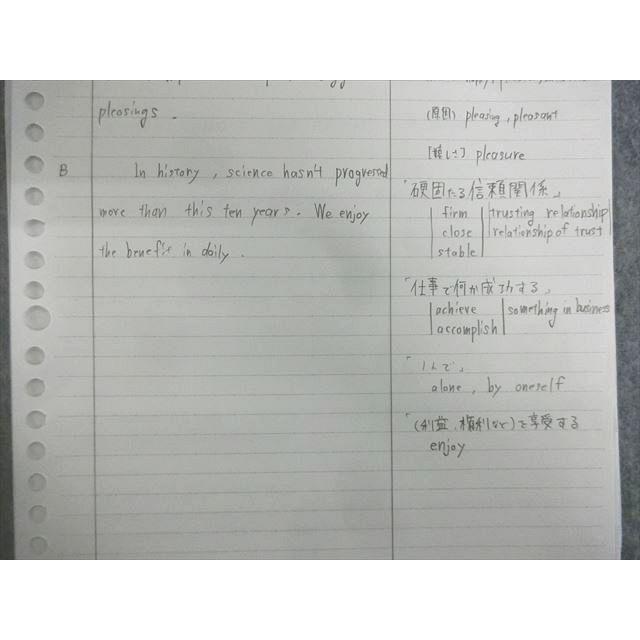 pleasings.
B In history, science hasn't progressed
more than this ten years. We enjoy
the benefit in daily.
(原因) pleasing, pleasant
pleasure
「硬固たる信頼関係」
firm trusting relationship
close relationship of trust
stable
「仕事で何か成功する」
achieve something in business
accomplish
「1人で」
alone, by oneself
「(利益、権利など)を享受する
enjoy